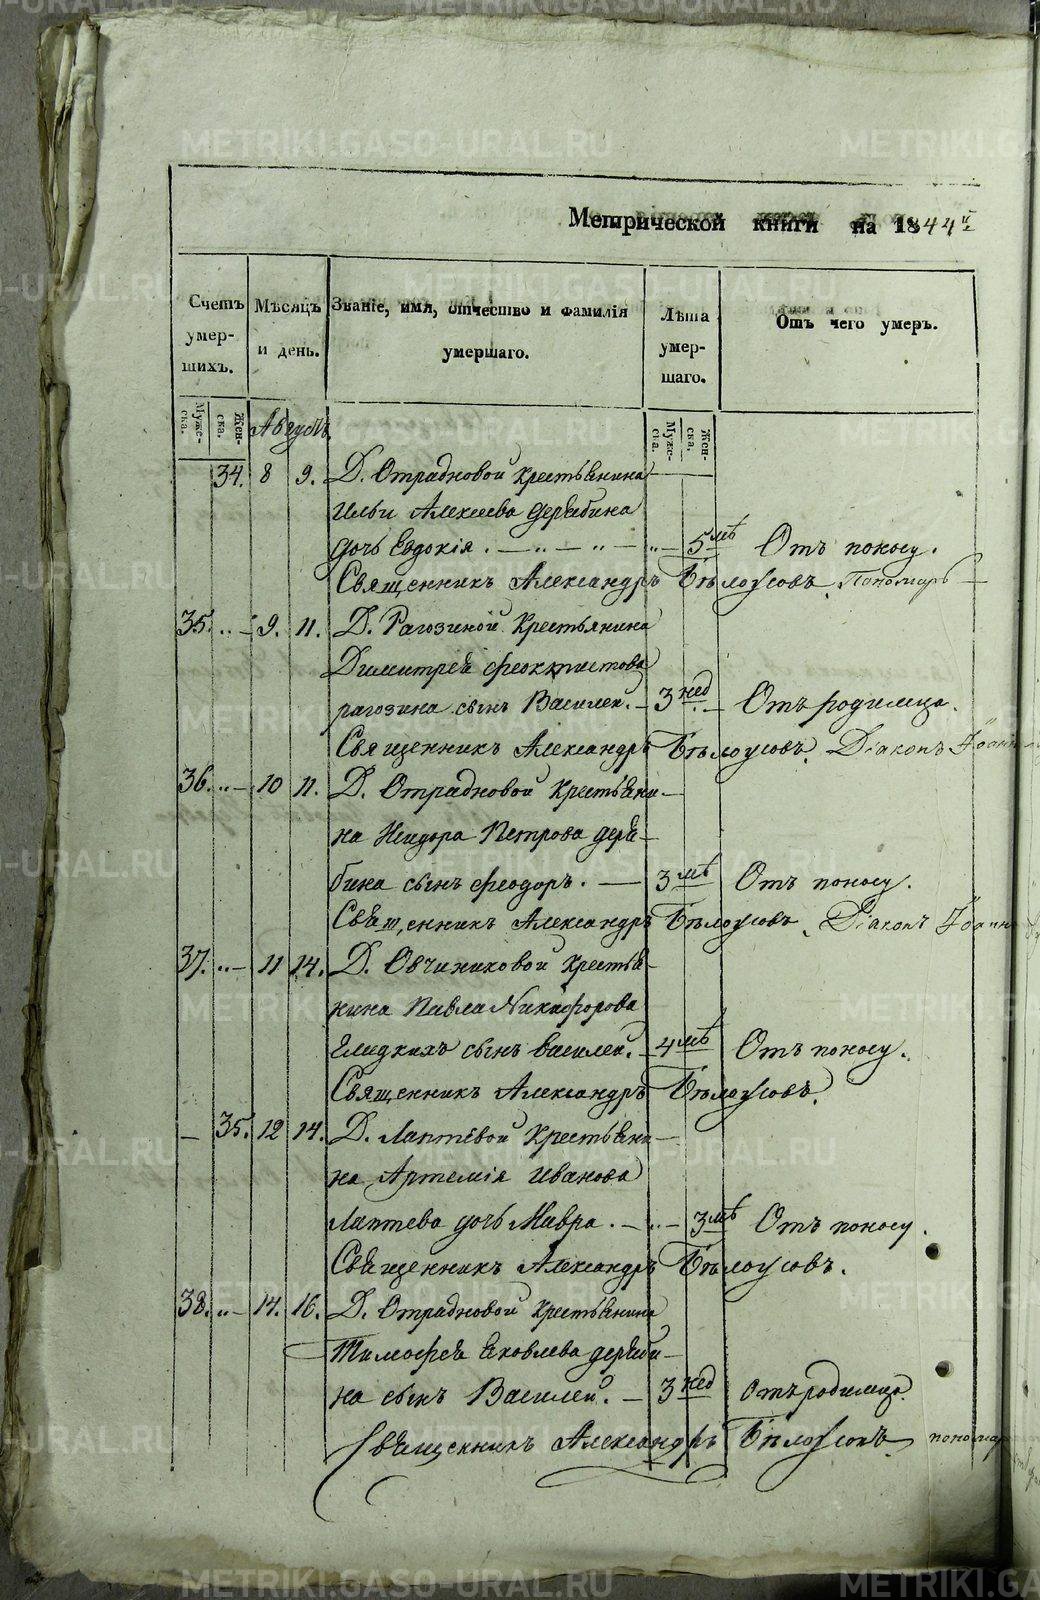 Метрической книги на 1844й
Счетъ умер- шихъ.
Мѣсяцъ и день.
Званіе, имя, отчество и фамилія умершаго.
Лѣта умер- шаго.
Отъ чего умеръ.
Муже- ска. Жен- ска. Августъ Муже- ска. Жен- ска.
34. 8 9. Д. Отрадновой крестьянина
Ильи Алексеева дерябина
дочь Евдокія. 5 лѣ Отъ поносу.
Священникъ Александръ Бѣлоусовъ. Пономарь
35. 9. 11. Д. Рагозиной Крестьянина
Димитрея феоктистова
рагозина сынъ Василей. 3 нед Отъ родимца.
Священникъ Александръ Бѣлоусовъ. Діаконъ Іоаннъ
36. 10 11. Д. Отрадновой Крестьяни-
на Исидора Петрова деря-
бина сынъ феодоръ. 3 лѣ Отъ поносу.
Священникъ Александръ Бѣлоусовъ. Діаконъ Іоаннъ
37. 11 14. Д. Овчиниковой Крестья-
нина Павла Никифорова
Гладкихъ сынъ василей. 4 лѣ Отъ поносу.
Священникъ Александръ Бѣлоусовъ.
35. 12 14. Д. Лаптевой Крестьяни-
на Артемія Иванова
Лаптева дочь Мавра. 3 лѣ Отъ поносу.
Священникъ Александръ Бѣлоусовъ.
38. 14. 16. Д. Отрадновой Крестьянина
Тимофея Яковлева деряби-
на сынъ Василей. 3 нед Отъ родимца.
Священникъ Александръ Бѣлоусовъ пономар
METRIKI.GASO-URAL.RU